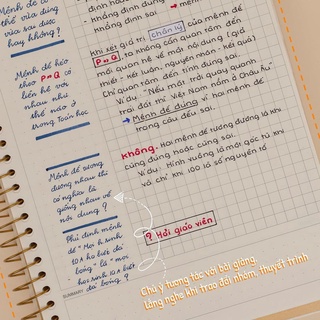 Mệnh đề có
thể vừa đúng
vừa sai được
hay không?
Mệnh đề kéo
theo P⇒Q có
liên hệ với
nhau như
thế nào ở
trong Toán học
Mệnh đề tương
đương nhau thì
có nghĩa là
giống nhau về
nội dung?
Phủ định mệnh
đề "Mọi h.sinh
10A ko biết đá
bóng" là "mọi
học sinh 10A biết
đá bóng"?
SUMMARY
định
- khẳng định đúng
khẳng định sai
Khi xét giá trị chân lý của mệnh đề
P⇒Q ta không cần quan tâm đến
mối quan hệ về mặt nội dung (giả
thiết - kết luận, nguyên nhân - kết quả)
Chỉ quan tâm đến tính đúng sai.
Ví dụ: "Nếu mặt trời quay quanh
trái đất thì Việt Nam nằm ở Châu Âu"
→ Mệnh đề đúng vì hai mệnh đề
trong câu đều sai.
Không. Hai mệnh đề tương đương là khi
cùng đúng hoặc cùng sai.
Ví dụ: Hình vuông có một góc tù khi
và chỉ khi 100 là số nguyên tố
? Hỏi giáo viên
Chú ý tương tác với bài giảng,
lắng nghe khi trao đổi nhóm, thuyết trình